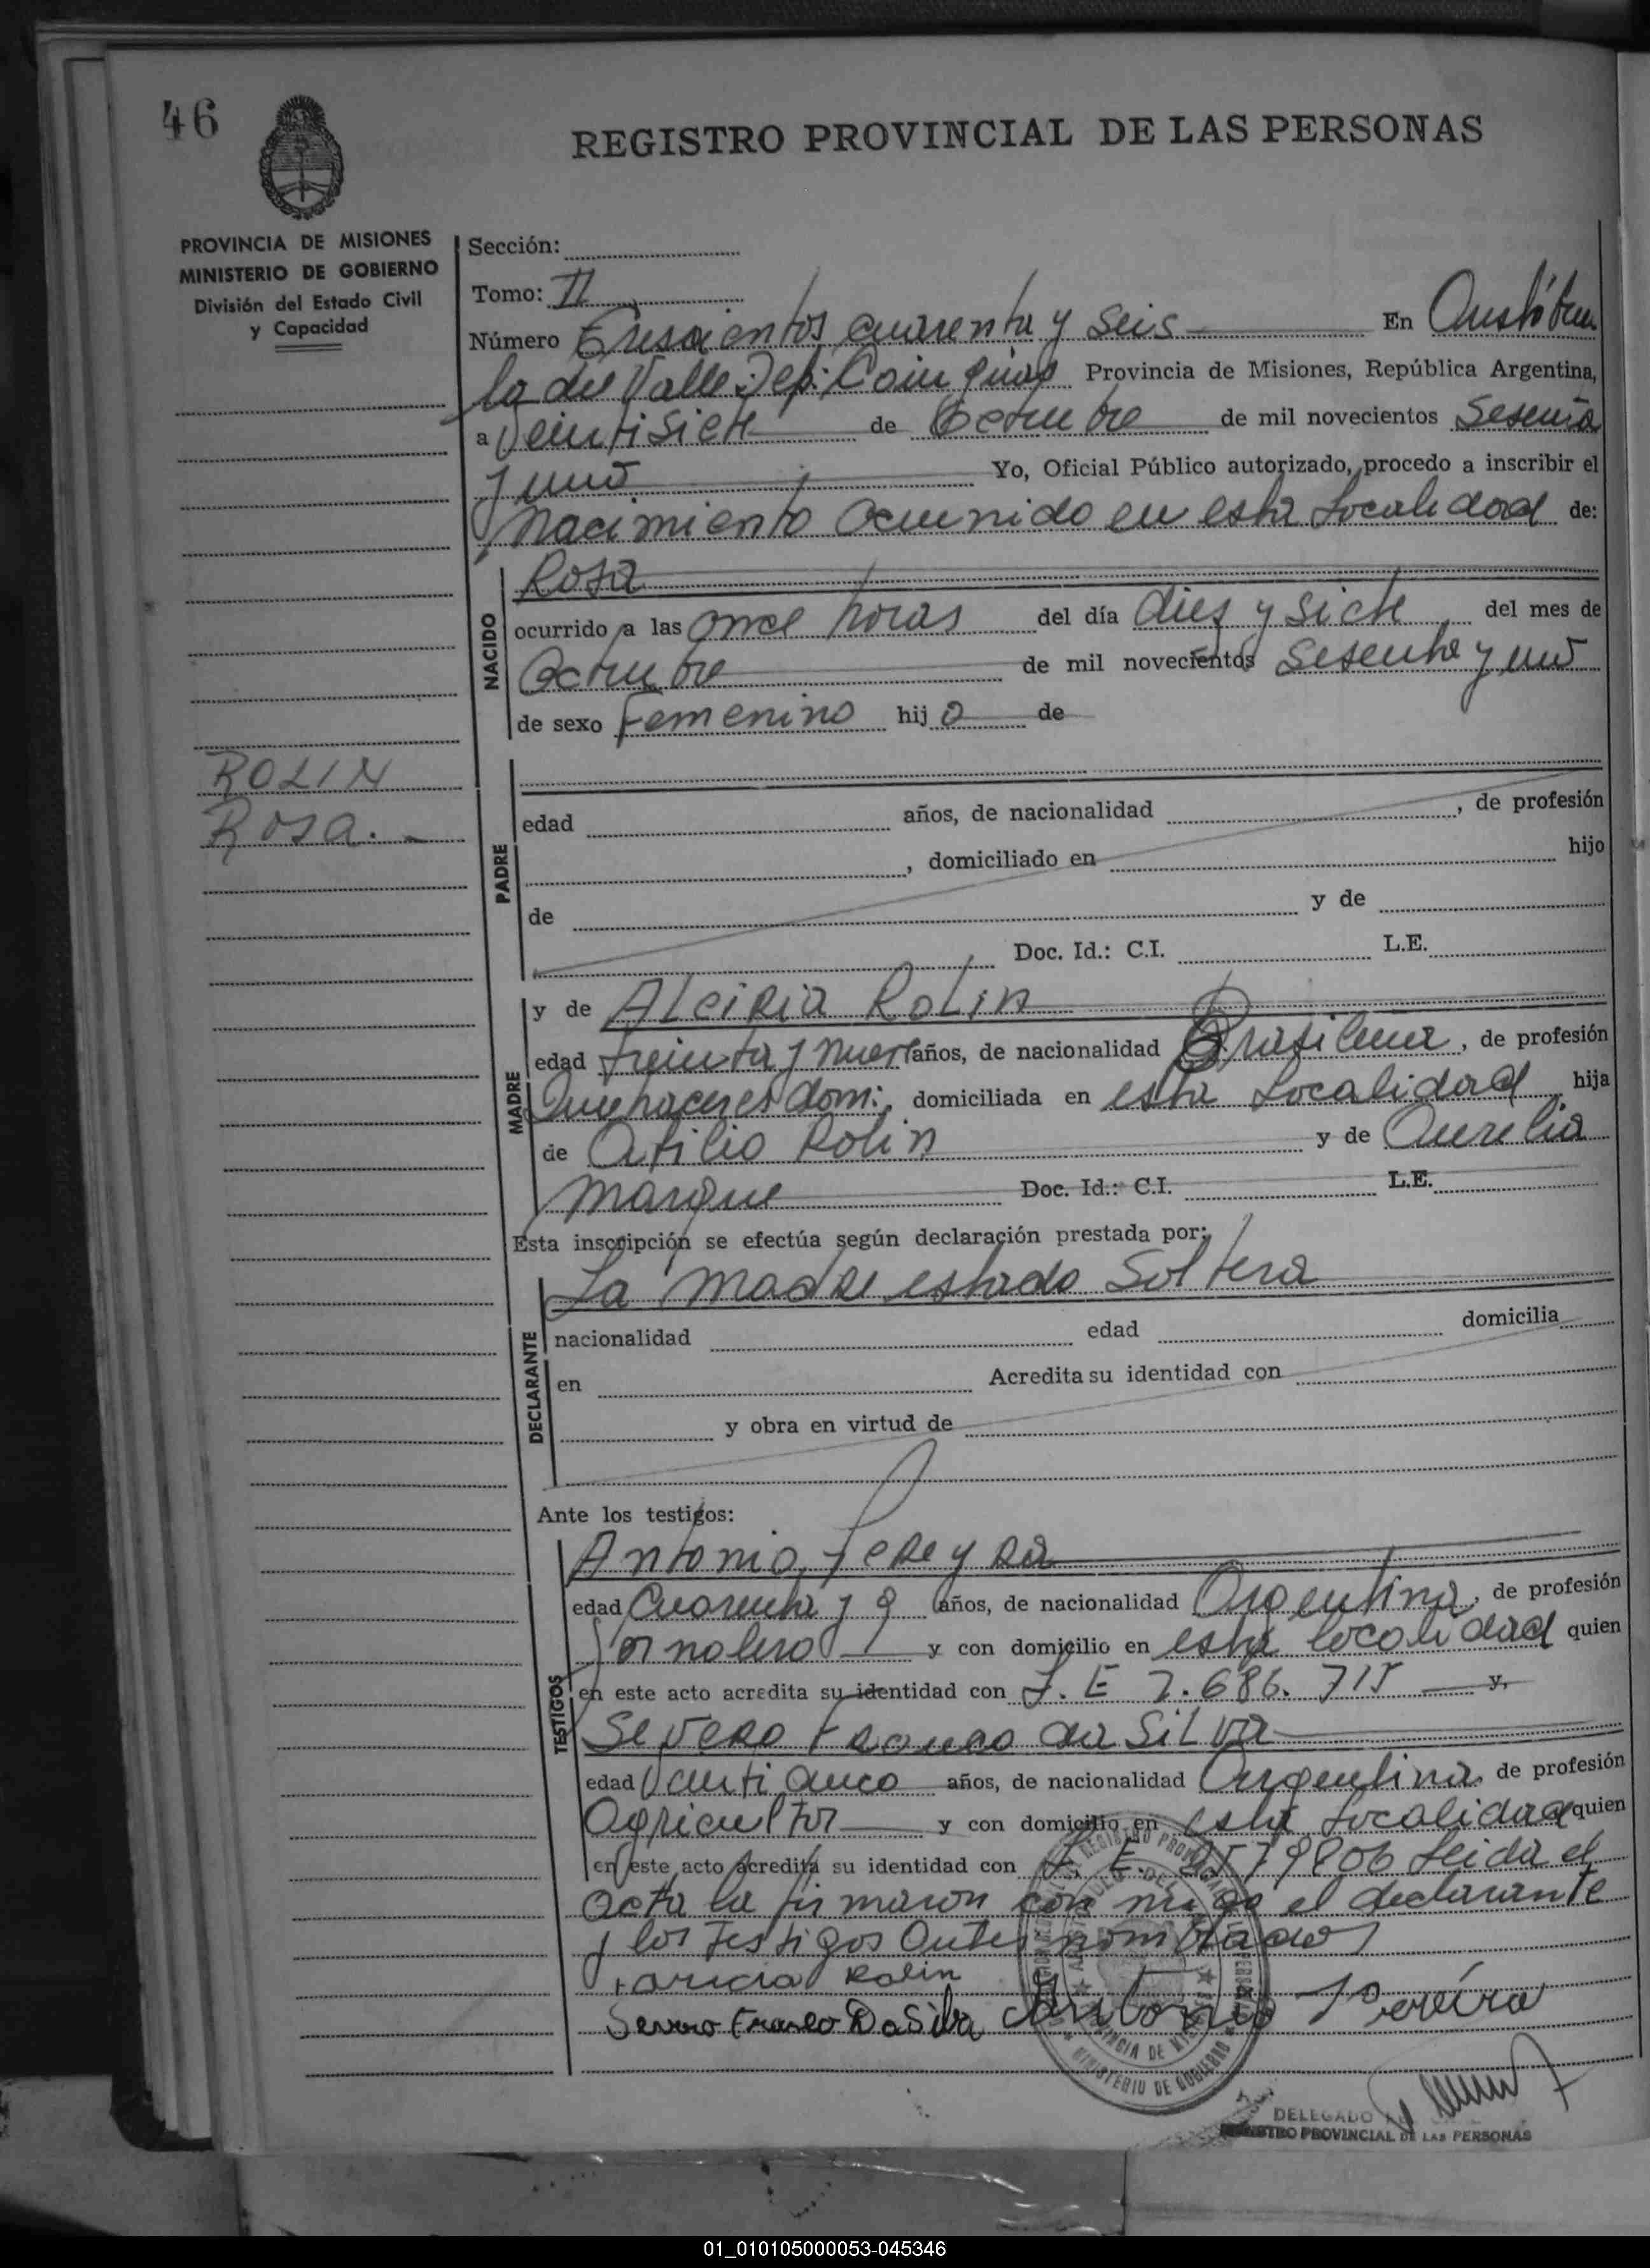 46
REGISTRO PROVINCIAL DE LAS PERSONAS
PROVINCIA DE MISIONES
MINISTERIO DE GOBIERNO
División del Estado Civil
y Capacidad
Sección:
Tomo: II
Número Trescientos cuarenta y seis En Aristóbu
lo del Valle Dep: Cainguas Provincia de Misiones, República Argentina,
a Veintisiete de Octubre de mil novecientos Sesenta
y uno Yo, Oficial Público autorizado, procedo a inscribir el
Nacimiento Ocurrido en esta Localidad de:
NACIDO
Rosa
ocurrido a las once horas del día dies y siete del mes de
Octubre de mil novecientos Sesenta y uno
de sexo Femenino hij a de
ROLIN
Rosa.-
PADRE
edad años, de nacionalidad , de profesión
, domiciliado en hijo
de y de
Doc. Id.: C.I. L.E.
MADRE
y de Alciria Rolin
edad treinta y nueve años, de nacionalidad Brasileña, de profesión
Quehaceres dom: domiciliada en esta Localidad hija
de Atilio Rolin y de Aurelia
Marque Doc. Id.: C.I. L.E.
Esta inscripción se efectúa según declaración prestada por:
DECLARANTE
La Madre estado Soltera
nacionalidad edad domicilia
en Acredita su identidad con
y obra en virtud de
Ante los testigos:
TESTIGOS
Antonio Pereyra
edad Cuarenta y 9 años, de nacionalidad Argentina, de profesión
Jornalero y con domicilio en esta localidad quien
en este acto acredita su identidad con L. E 7.686.715 y,
Severo Franco da Silva
edad Veinti cinco años, de nacionalidad Argentina, de profesión
Agricultor y con domicilio en esta Localidad quien
en este acto acredita su identidad con L. E. Leida el
acta la firmaron con migo el declarante
y los Testigos Antes nombrados
Rolin
Severo Franco Da Silva Antonio Pereira
REGISTRO PROVINCIAL DE LAS PERSONAS
MINISTERIO DE GOBIERNO
DELEGADO
REGISTRO PROVINCIAL DE LAS PERSONAS
01_010105000053-045346